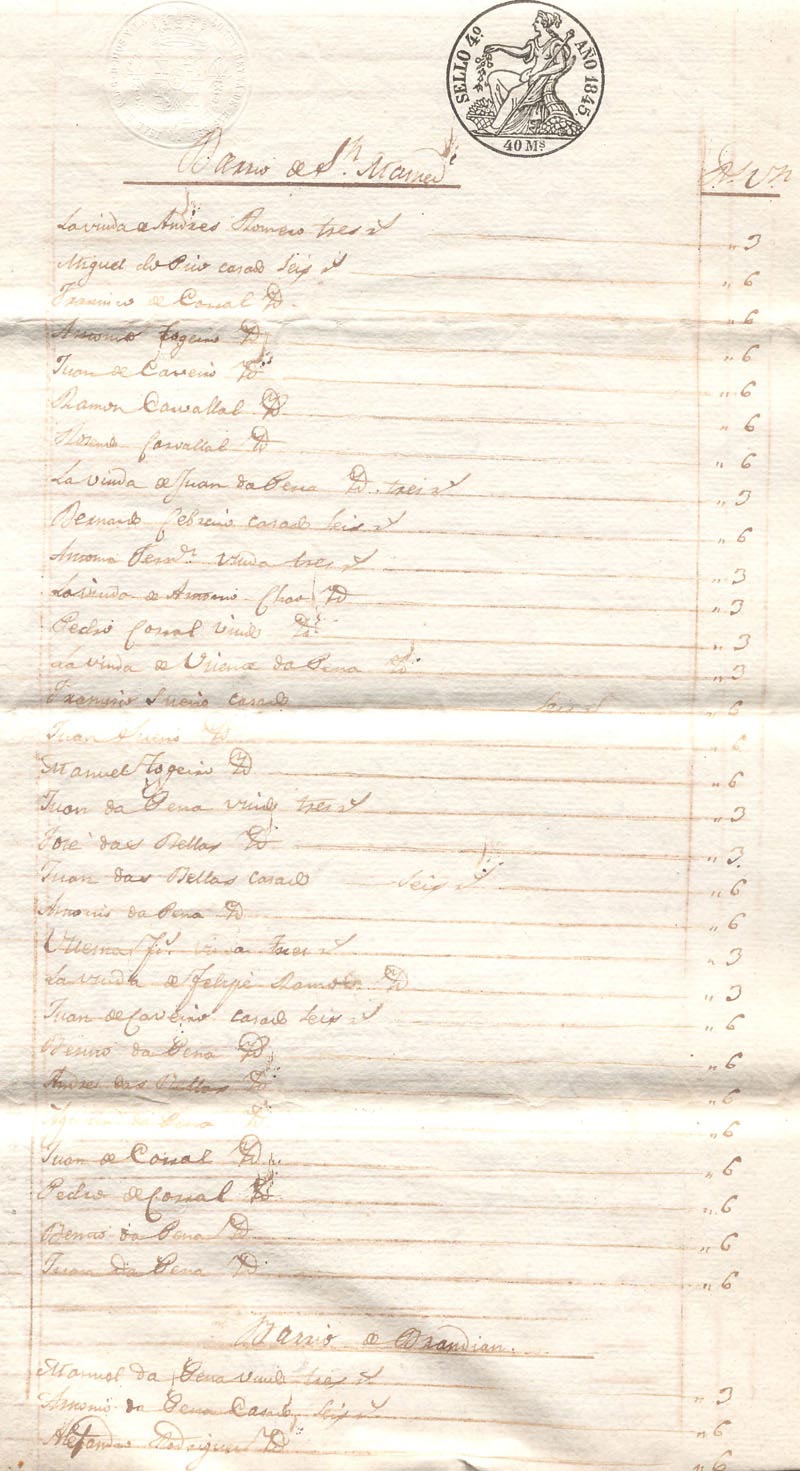 SELLO 4º AÑO 1845.
40 Mˢ
Barrio de Sⁿ. Mamed
Rˢ Vⁿ
La viuda de Andres Romero tres rˢ " 3
Miguel do Rio casado seis rˢ " 6
Francisco de Corral Yd. " 6
Antonio Fogeiro Yd " 6
Juan de Caveiro Yd " 6
Ramon Carvallal Yd " 6
Carvallal Yd " 6
La viuda de Juan da Pena Yd. tres rˢ " 3
Bernardo Febreiro casado seis rˢ " 6
Antonia Fernᶻ viuda tres rˢ " 3
La viuda de Antonio Chao Yd " 3
Pedro Corral viudo Yd " 3
La viuda de Vicente da Pena Yd " 3
Francisco Sueiro casado seis rˢ " 6
Juan Sueiro Yd " 6
Manuel Fogeiro Yd " 6
Juan da Pena viudo tres rˢ " 3
José das Bellas Yd " 3.
Juan das Bellas casado seis rˢ " 6
Antonio da Pena Yd " 6
viuda tres rˢ " 3
La viuda de Felipe Ramos Yd " 3
Juan de Caveiro casado seis rˢ " 6
Benito da Pena Yd " 6
Andres das Bellas Yd " 6
da Pena Yd " 6
Juan de Corral Yd " 6
Pedro de Corral Yd " 6
Benito da Pena Yd " 6
Juan da Pena Yd " 6
Barrio de Brandian.
Manuel da Pena viudo tres rˢ " 3
Antonio da Pena Casado seis rˢ " 6
Alejandro Rodriguez Yd " 6